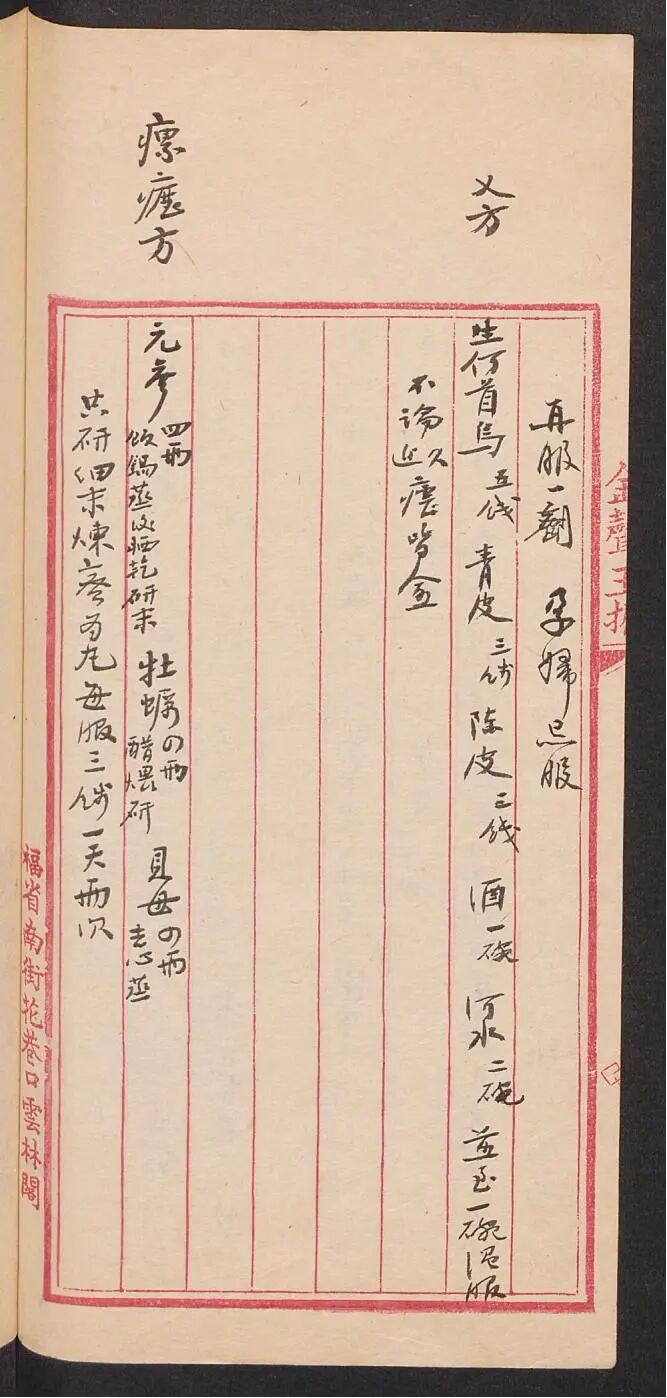 再服一剤 孕婦忌服
又方
生何首烏五錢 青皮三錢 陈皮三錢 酒一碗 河水二碗 煎至一碗温服
不論久近瘧皆愈
瘰癧方
元參四兩 飯鍋蒸後晒乾研末 牡蠣四兩 醋煨研 貝母四兩 去心蒸
共研细末煉蜜为丸每服三錢一天兩次
金聲玉振
福省南街花巷口雲林閣